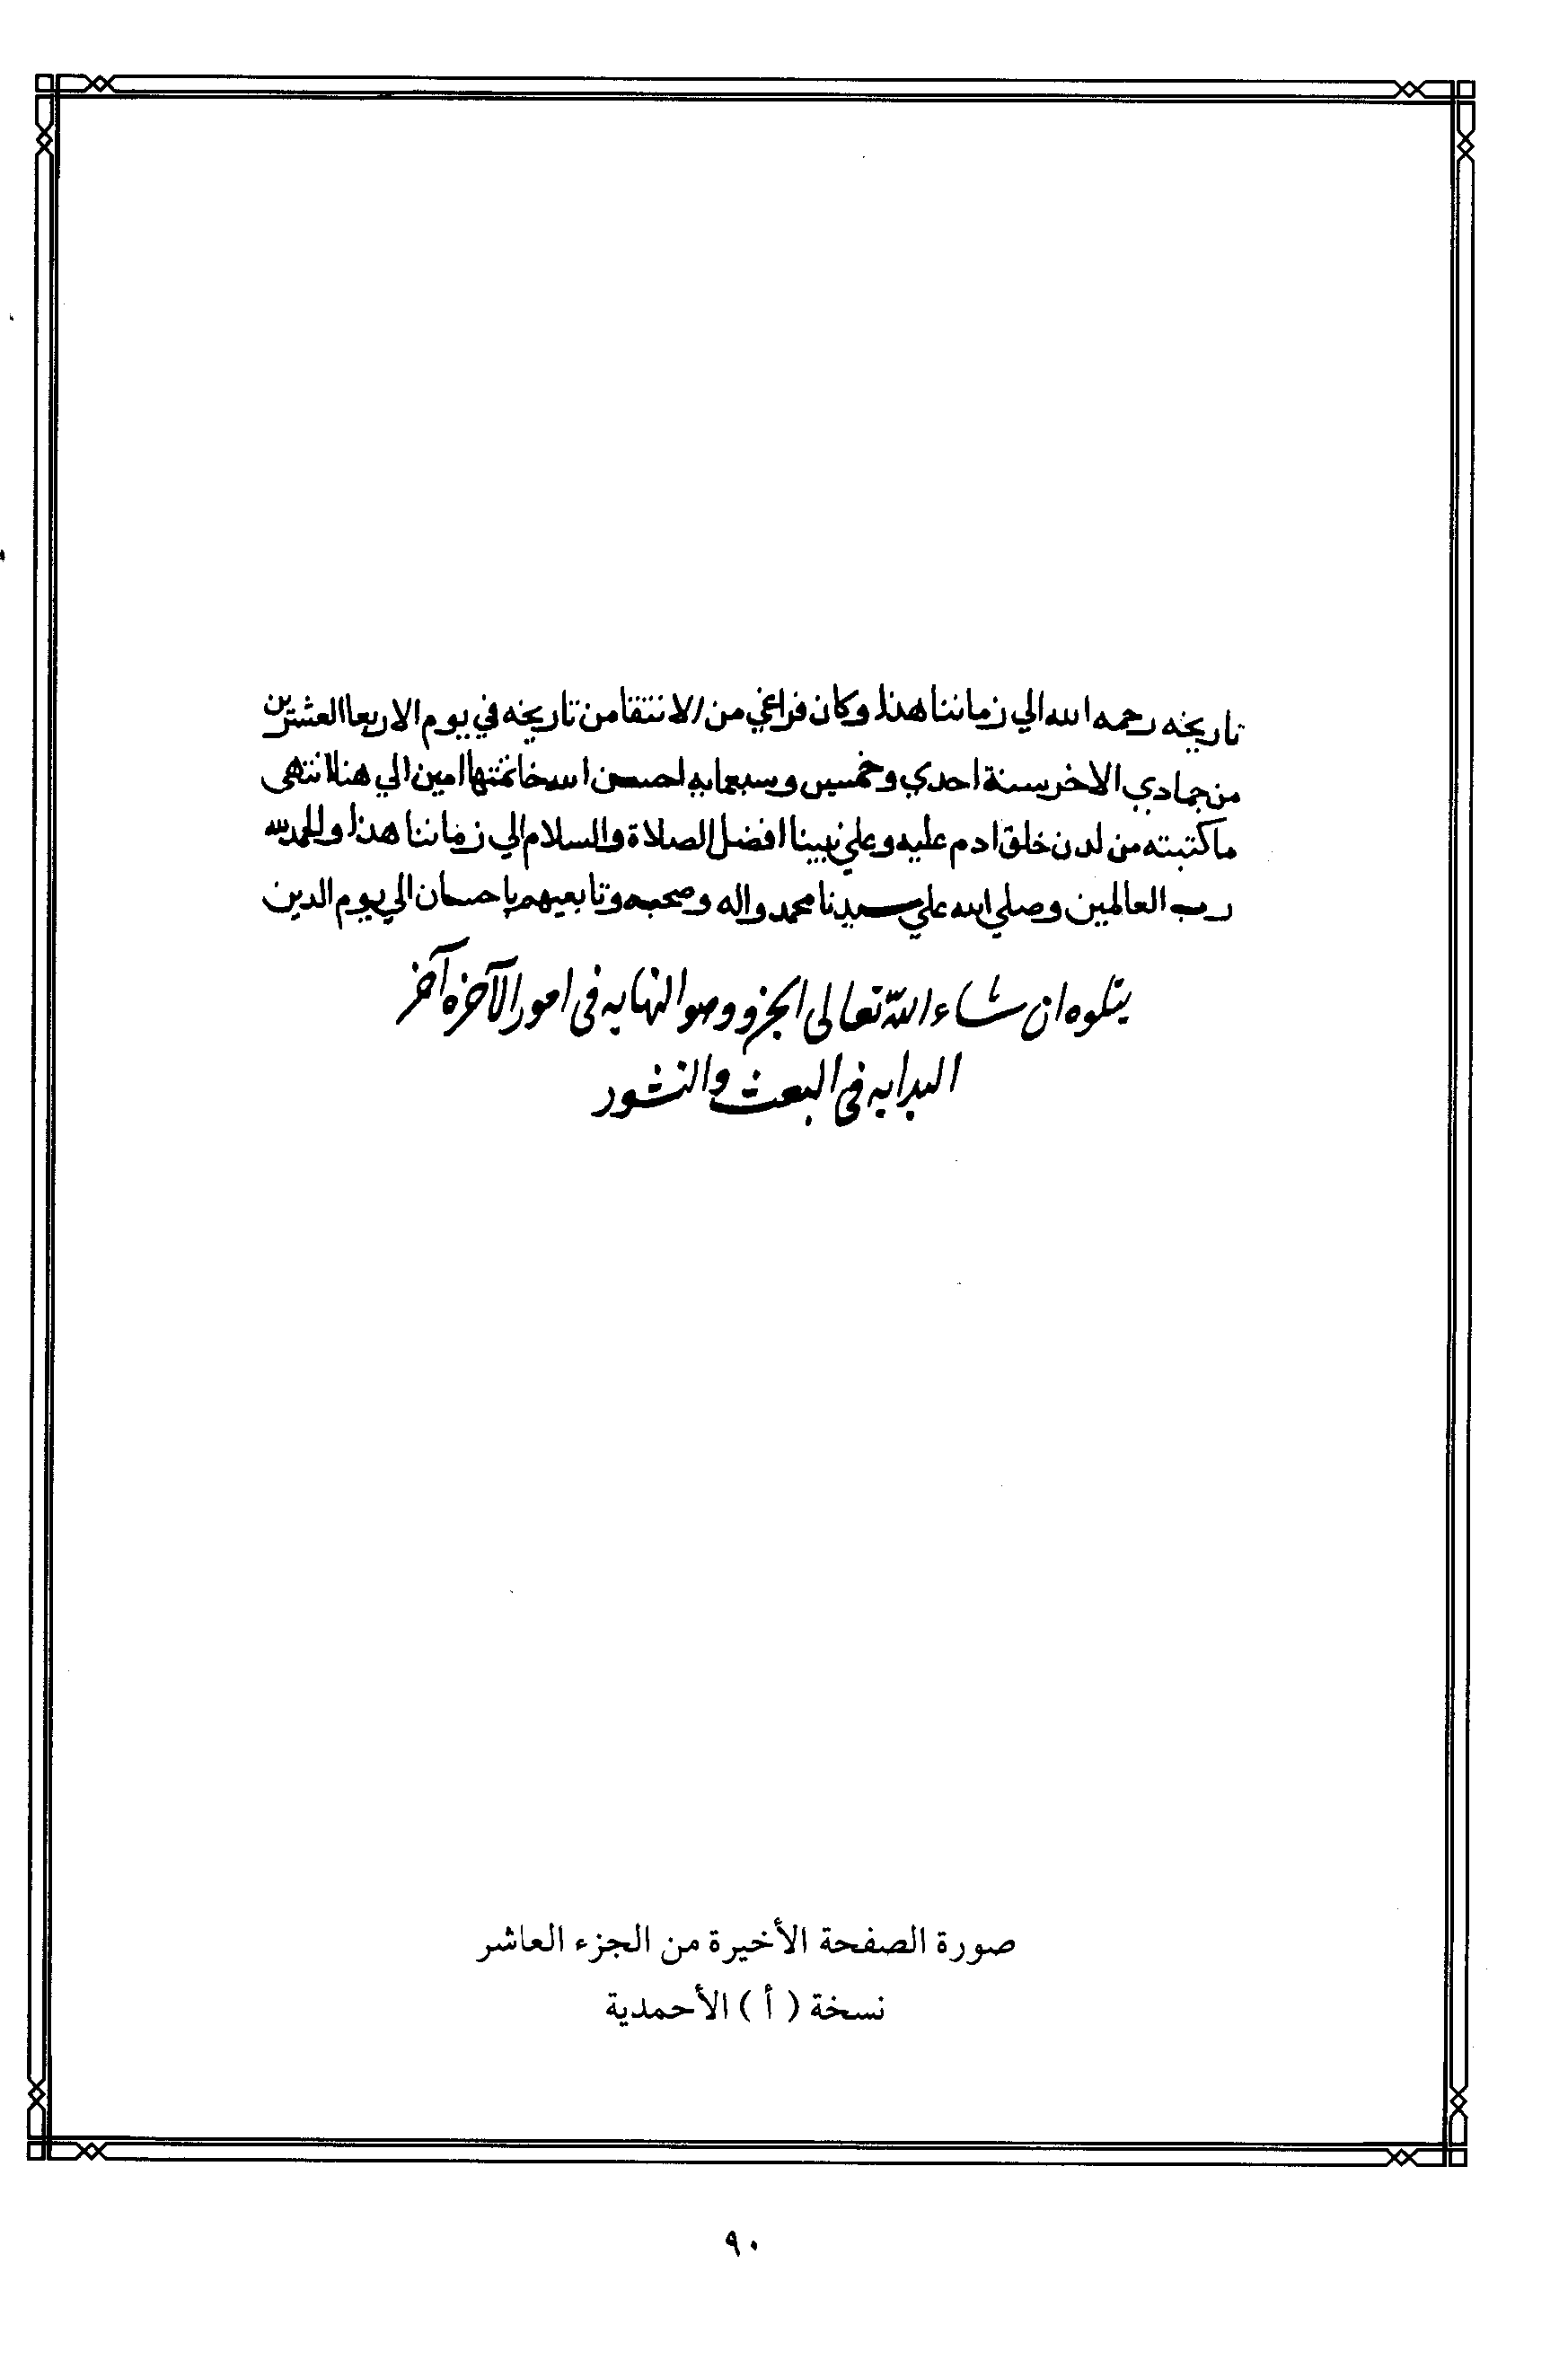 تاريخه رحمه الله الي زماننا هذا وكان فراغي من الانتقا من تاريخه في يوم الاربعا العشرين
من جمادي الاخر سنة احدي وخمسين وسبعمايه احسن الله خاتمتها امين الي هنا انتهى
ما كتبته من لدن خلق ادم عليه وعلي نبينا افضل الصلاة والسلام الي زماننا هذا والحمد لله
رب العالمين وصلي الله علي سيدنا محمد واله وصحبه وتابعيهم باحسان الي يوم الدين
يتلوه ان شاء الله تعالى الجزو وهو النهايه في امور الآخره آخر
البدايه في البعث والنشور
صورة الصفحة الأخيرة من الجزء العاشر
نسخة ( أ ) الأحمدية
٩٠